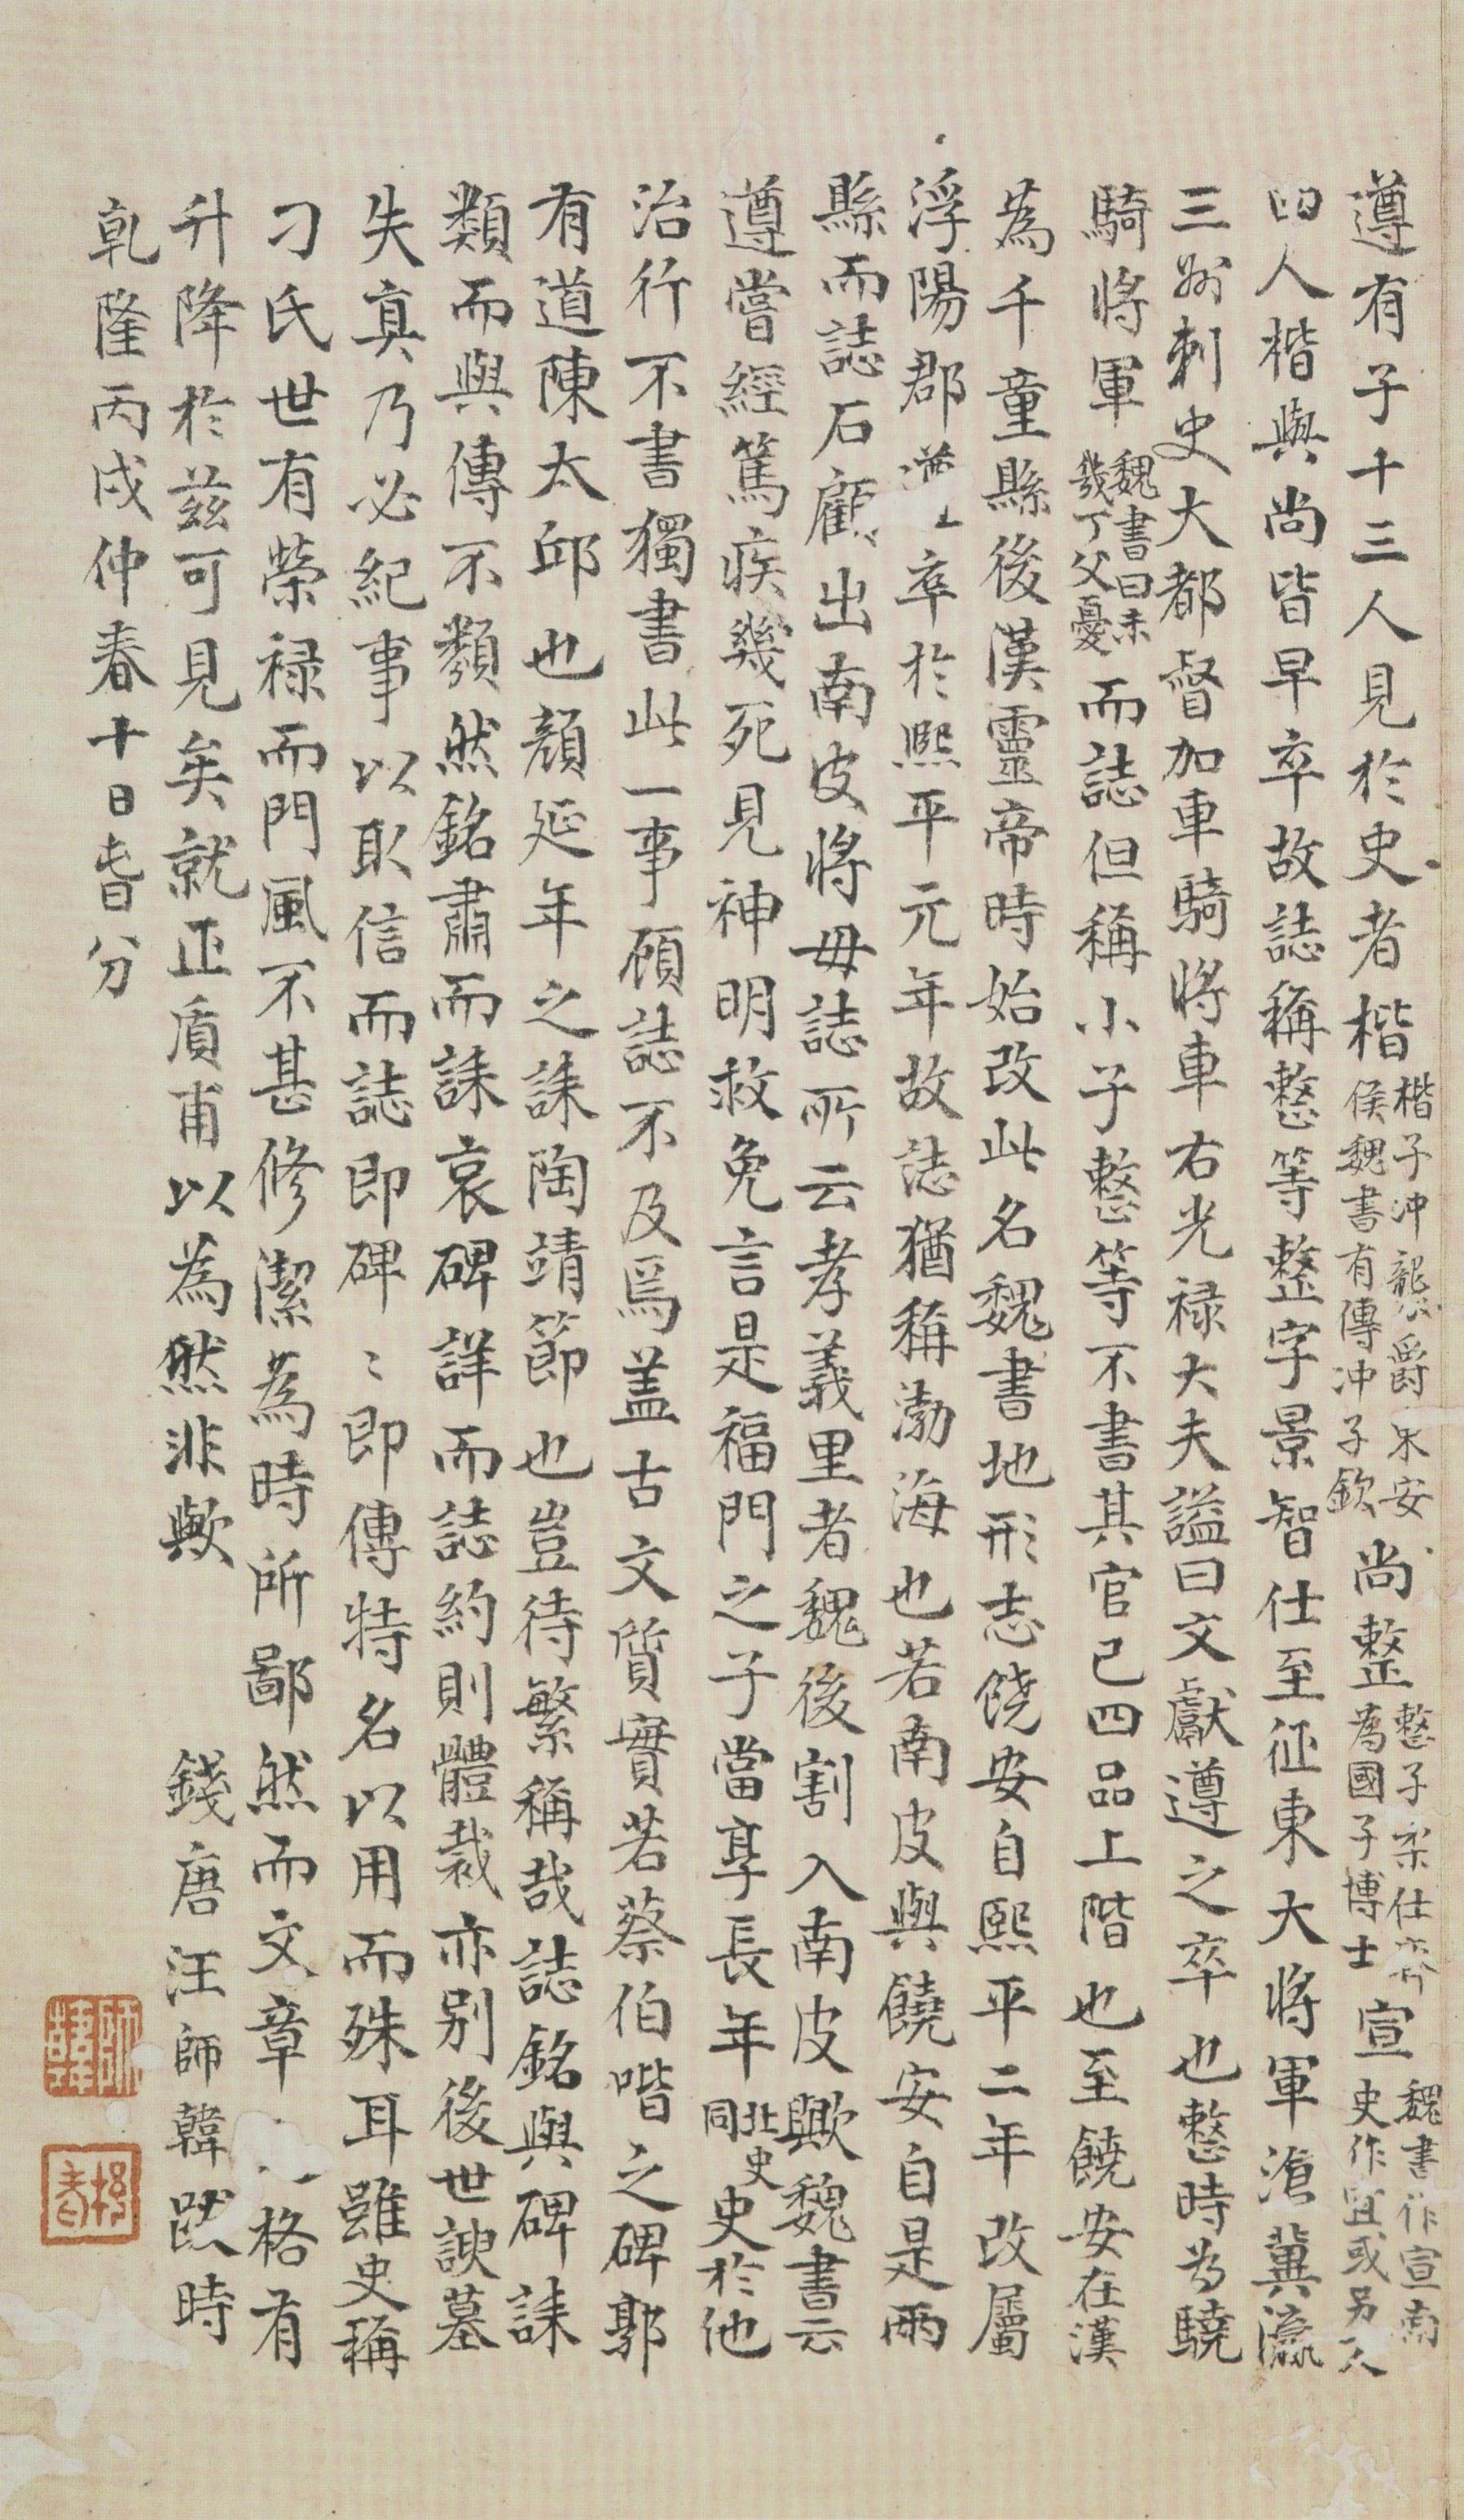 遵有子十三人見於史者楷楷子沖襲爵朱安侯魏書有傳沖子欽尚整整子柰仕齊為國子博士宣魏書作宣南史作或另一人
四人楷與尚皆早卒故誌稱整等整字景智仕至征東大將軍滄冀瀛
三州刺史大都督加車騎將車右光禄大夫謚曰文獻遵之卒也整時為驍
騎將軍魏書曰未幾丁父憂而誌但稱小子整等不書其官已四品上階也至饒安在漢
為千童縣後漢靈帝時始改此名魏書地形志饒安自熙平二年改屬
浮陽郡遵卒於熙平元年故誌猶稱渤海也若南皮與饒安自是兩
縣而誌石顧出南皮將毋誌所云孝義里者魏後割入南皮歟魏書云
遵嘗經篤疾幾死見神明救免言是福門之子當享長年北史同史於他
治行不書獨書此一事顧誌不及焉盖古文質實若蔡伯喈之碑郭
有道陳太邱也顏延年之誄陶靖節也豈待繁稱哉誌銘與碑誄
類而與傳不類然銘肅而誄哀碑詳而誌約則體裁亦别後世諛墓
失真乃必紀事以取信而誌即碑〻即傳特名以用而殊耳雖史稱
刁氏世有榮禄而門風不甚修潔為時所鄙然而文章之格有
升降於兹可見矣就正盾甫以為然非歟 錢唐汪師韓跋時
乾隆丙戌仲春十日昏分